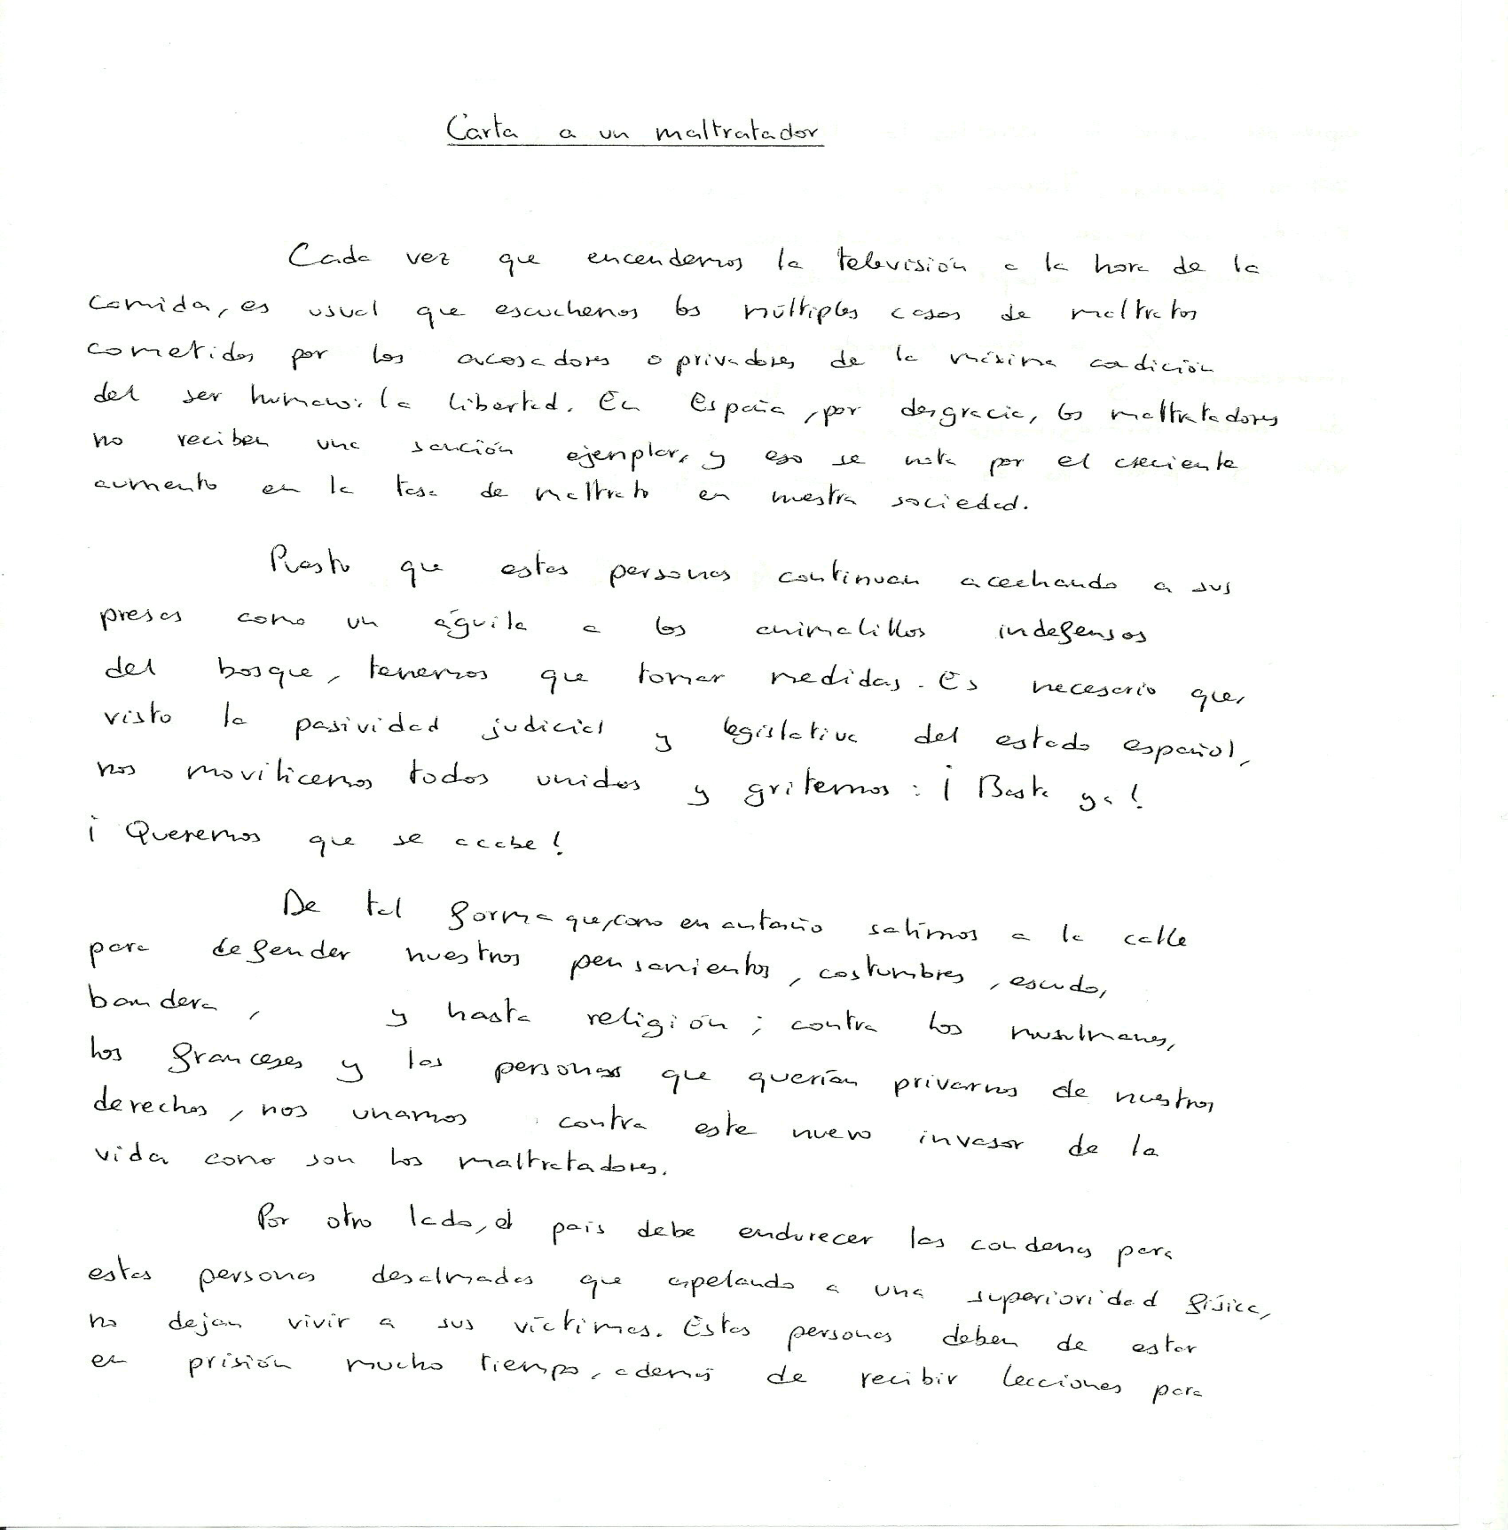 Carta a un maltratador
Cada vez que encendemos la televisión a la hora de la
comida, es usual que escuchemos los múltiples casos de maltratos
cometidos por los acosadores o privadores de la máxima condición
del ser humano: la libertad. En España, por desgracia, los maltratadores
no reciben una sanción ejemplar, y eso se nota por el creciente
aumento en la tasa de maltrato en nuestra sociedad.
Puesto que estas personas continuan acechando a sus
presas como un águila a los animalillos indefensos
del bosque, tenemos que tomar medidas. Es necesario que,
visto la pasividad judicial y legislativa del estado español,
nos movilicemos todos unidos y gritemos: ¡Basta ya!
¡Queremos que se acabe!
De tal forma que, como en antaño salimos a la calle
para defender nuestros pensamientos, costumbres, escudo,
bandera, y hasta religión; contra los musulmanes,
los franceses y las personas que querían privarnos de nuestros
derechos, nos unamos contra este nuevo invasor de la
vida como son los maltratadores.
Por otro lado, el país debe endurecer las condenas para
estas personas desalmadas que apelando a una superioridad física,
no dejan vivir a sus víctimas. Estas personas deben de estar
en prisión mucho tiempo, además de recibir lecciones para